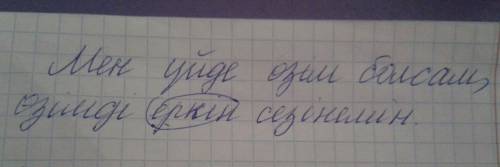 Мен үйде өзім болсам,
өзімді еркін сезінемін.